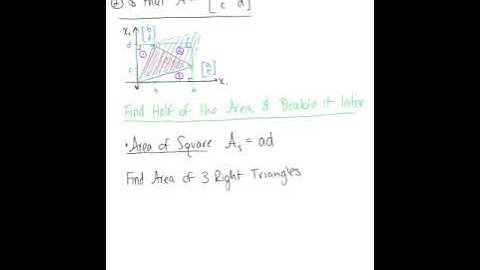 ② is that A = [ c d ]
x₂
[ b d ]
d ① ②
c [ a c ]
③
b a x₁
Find Half of the Area & Double it later
• Area of Square Aₛ = ad
Find Area of 3 Right Triangles